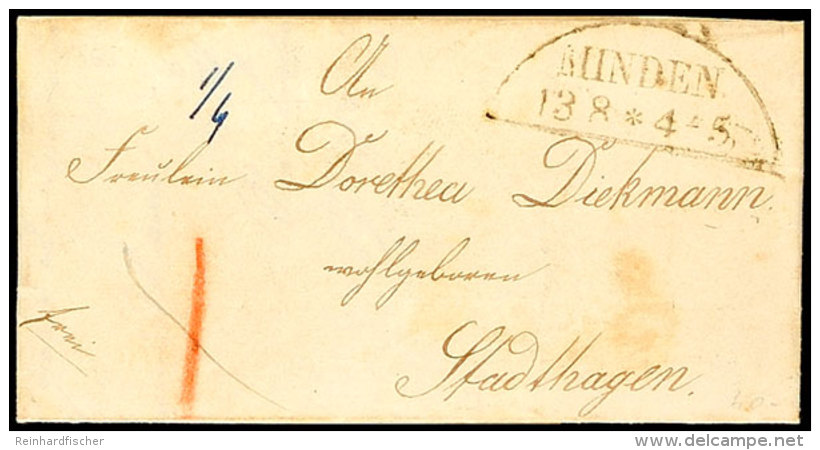 MINDEN
13 8 * 4-5
1/4
An
Freulein Dorethea Diekmann.
wohlgeboren
frei
Stadthagen.
Reinhardfischer
delcampe.net